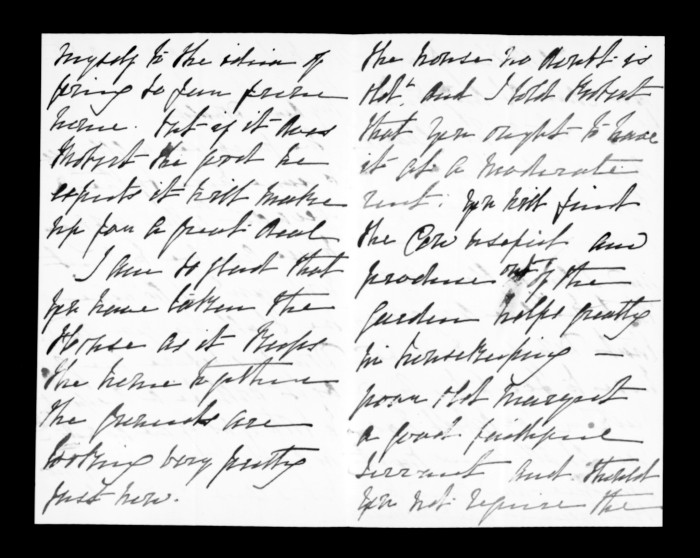 myself to the idea of
going so far from
home. but if it does
Robert the good he
expects it will make
up for a great deal
I am so glad that
you have taken the
House as it keeps
the home together
the grounds are
looking very pretty
just now.
the house no doubt is
old, and I told Robert
that you ought to have
it at a moderate
rent. you will find
the Cow useful and
produce out of the
Garden helps greatly
in housekeeping —
poor old Margaret
a good faithful
servant and should
you not require the